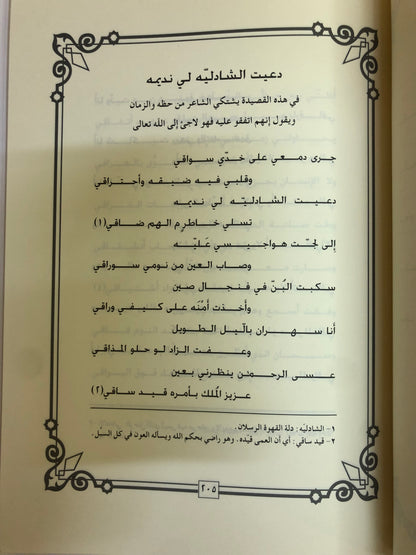 دعيت الشادليّه لي نديمه
في هذه القصيدة يشتكي الشاعر من حظه والزمان
ويقول إنهم اتفقو عليه فهو لاجئ إلى الله تعالى
جرى دمعي على خدّي سواقي
وقلبي فيه ضيقه وأحتراقي
دعيت الشادليّه لي نديمه
تسلي خاطرِم الهم ضاقي(١)
إلى لجّت هواجيسي عَليّه
وصاب العين من نومي سوراقي
سكبت البُنّ في فنجال صين
وأخذت أمّنَه على كيفي وراقي
أنا سهران بالّيل الطويل
وعفت الزاد لو حلو المذاقي
عسى الرحمن ينظرني بعين
عزيز المُلك بأمره قيد ساقي(٢)
١- الشاذليّه: دلة القهوة الرسلان.
٢- قيد ساقي: أي أن العمى قيّده، وهو راضي بحكم الله ويسأله العون في كل السبُل.
٢٠٥